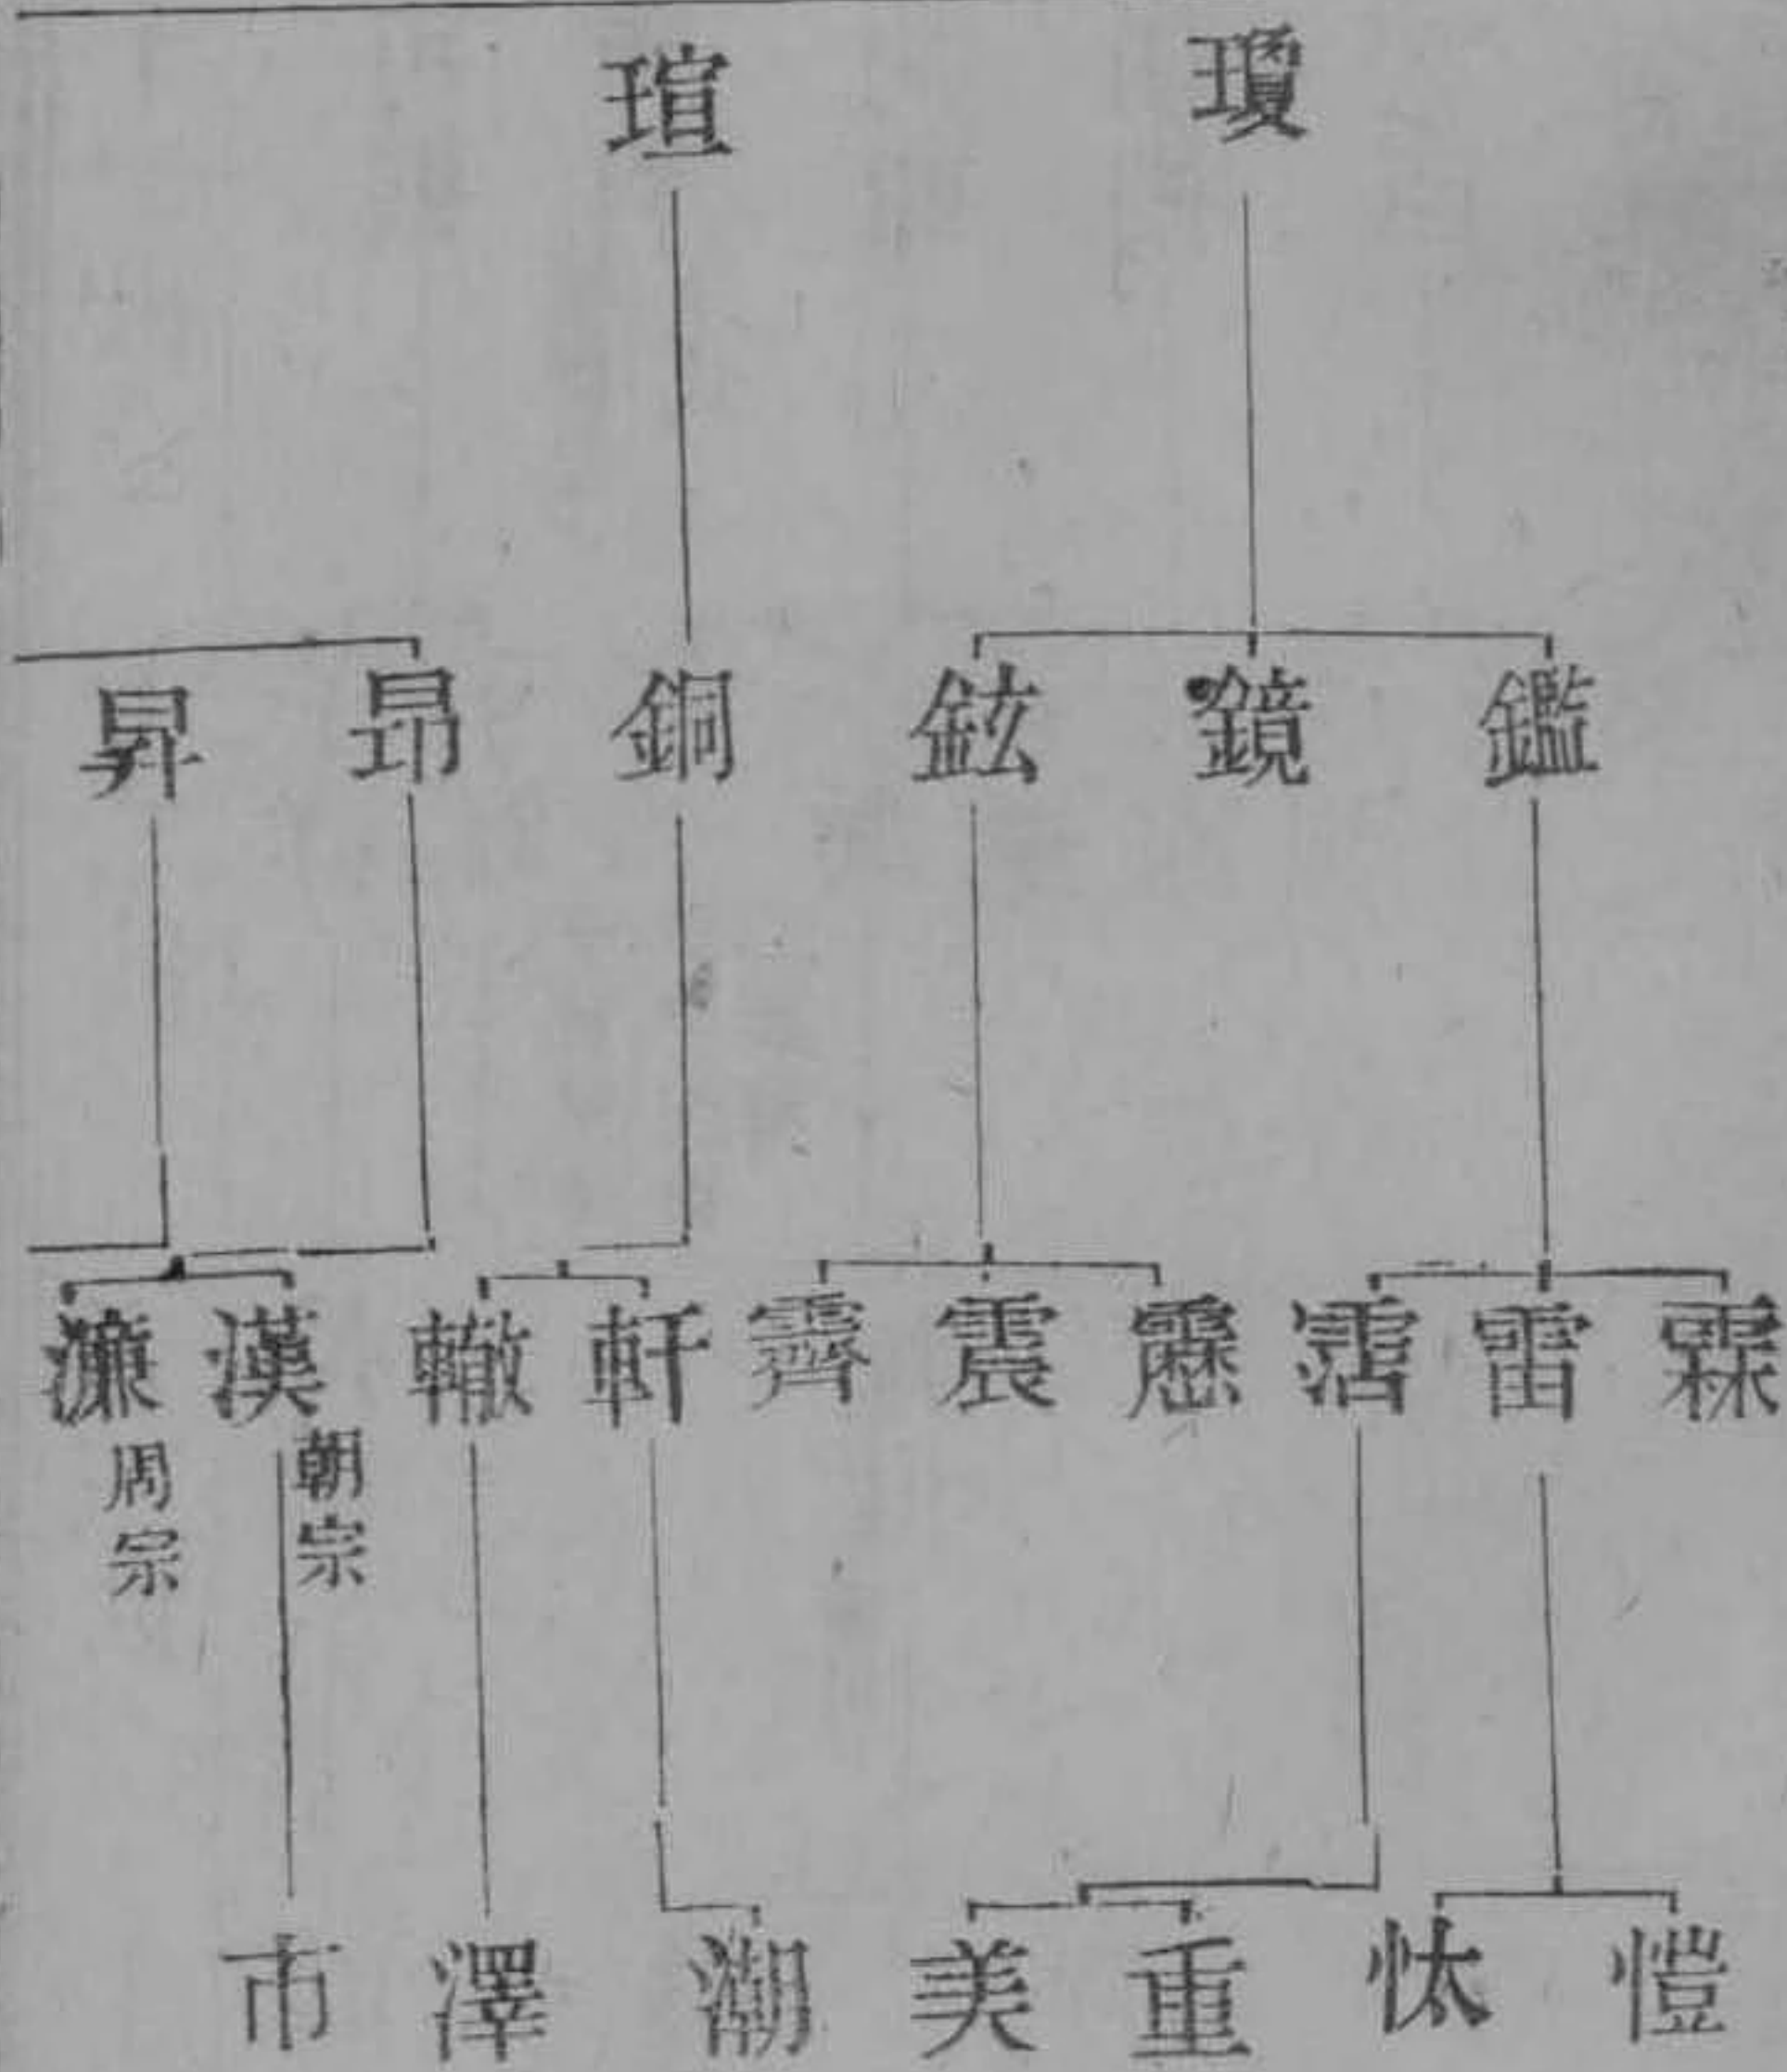 瓊 瑄
鑑 鏡 鉉 銅 昂 昇
霖 雷 霑 震 霽 軒 轍 漢 濂
朝宗
周宗
愷 忲 重 美 潮 澤 市